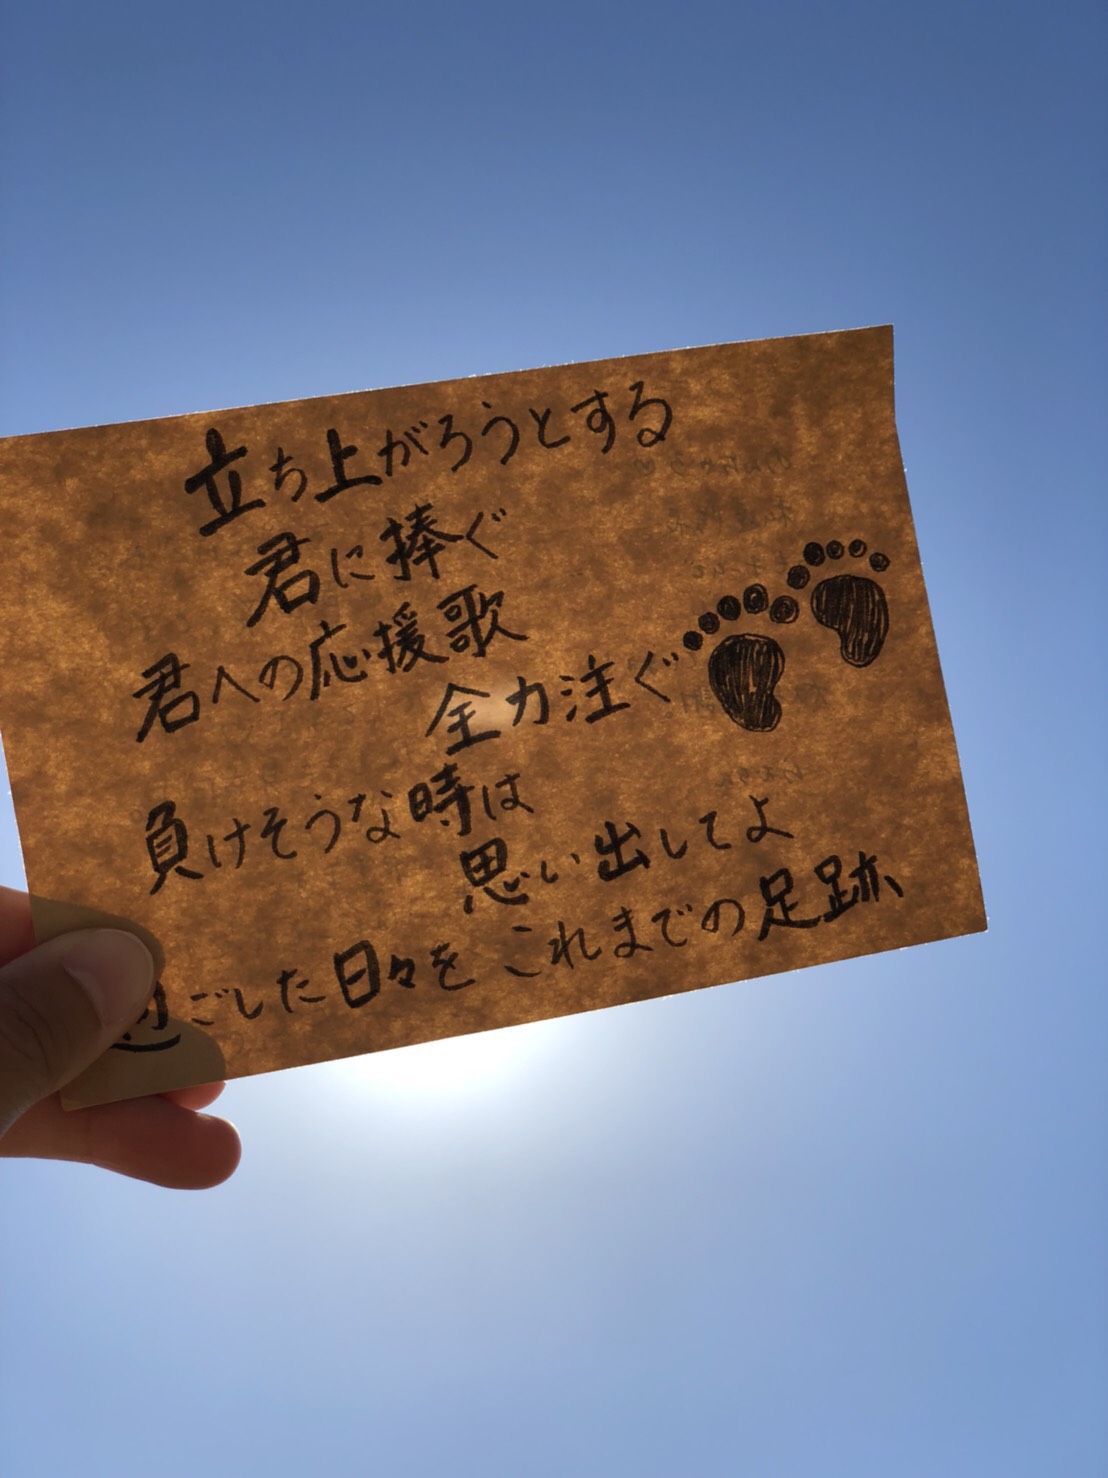 立ち上がろうとする
君に捧ぐ
君への応援歌
全力注ぐ
負けそうな時は
思い出してよ
過ごした日々を これまでの足跡